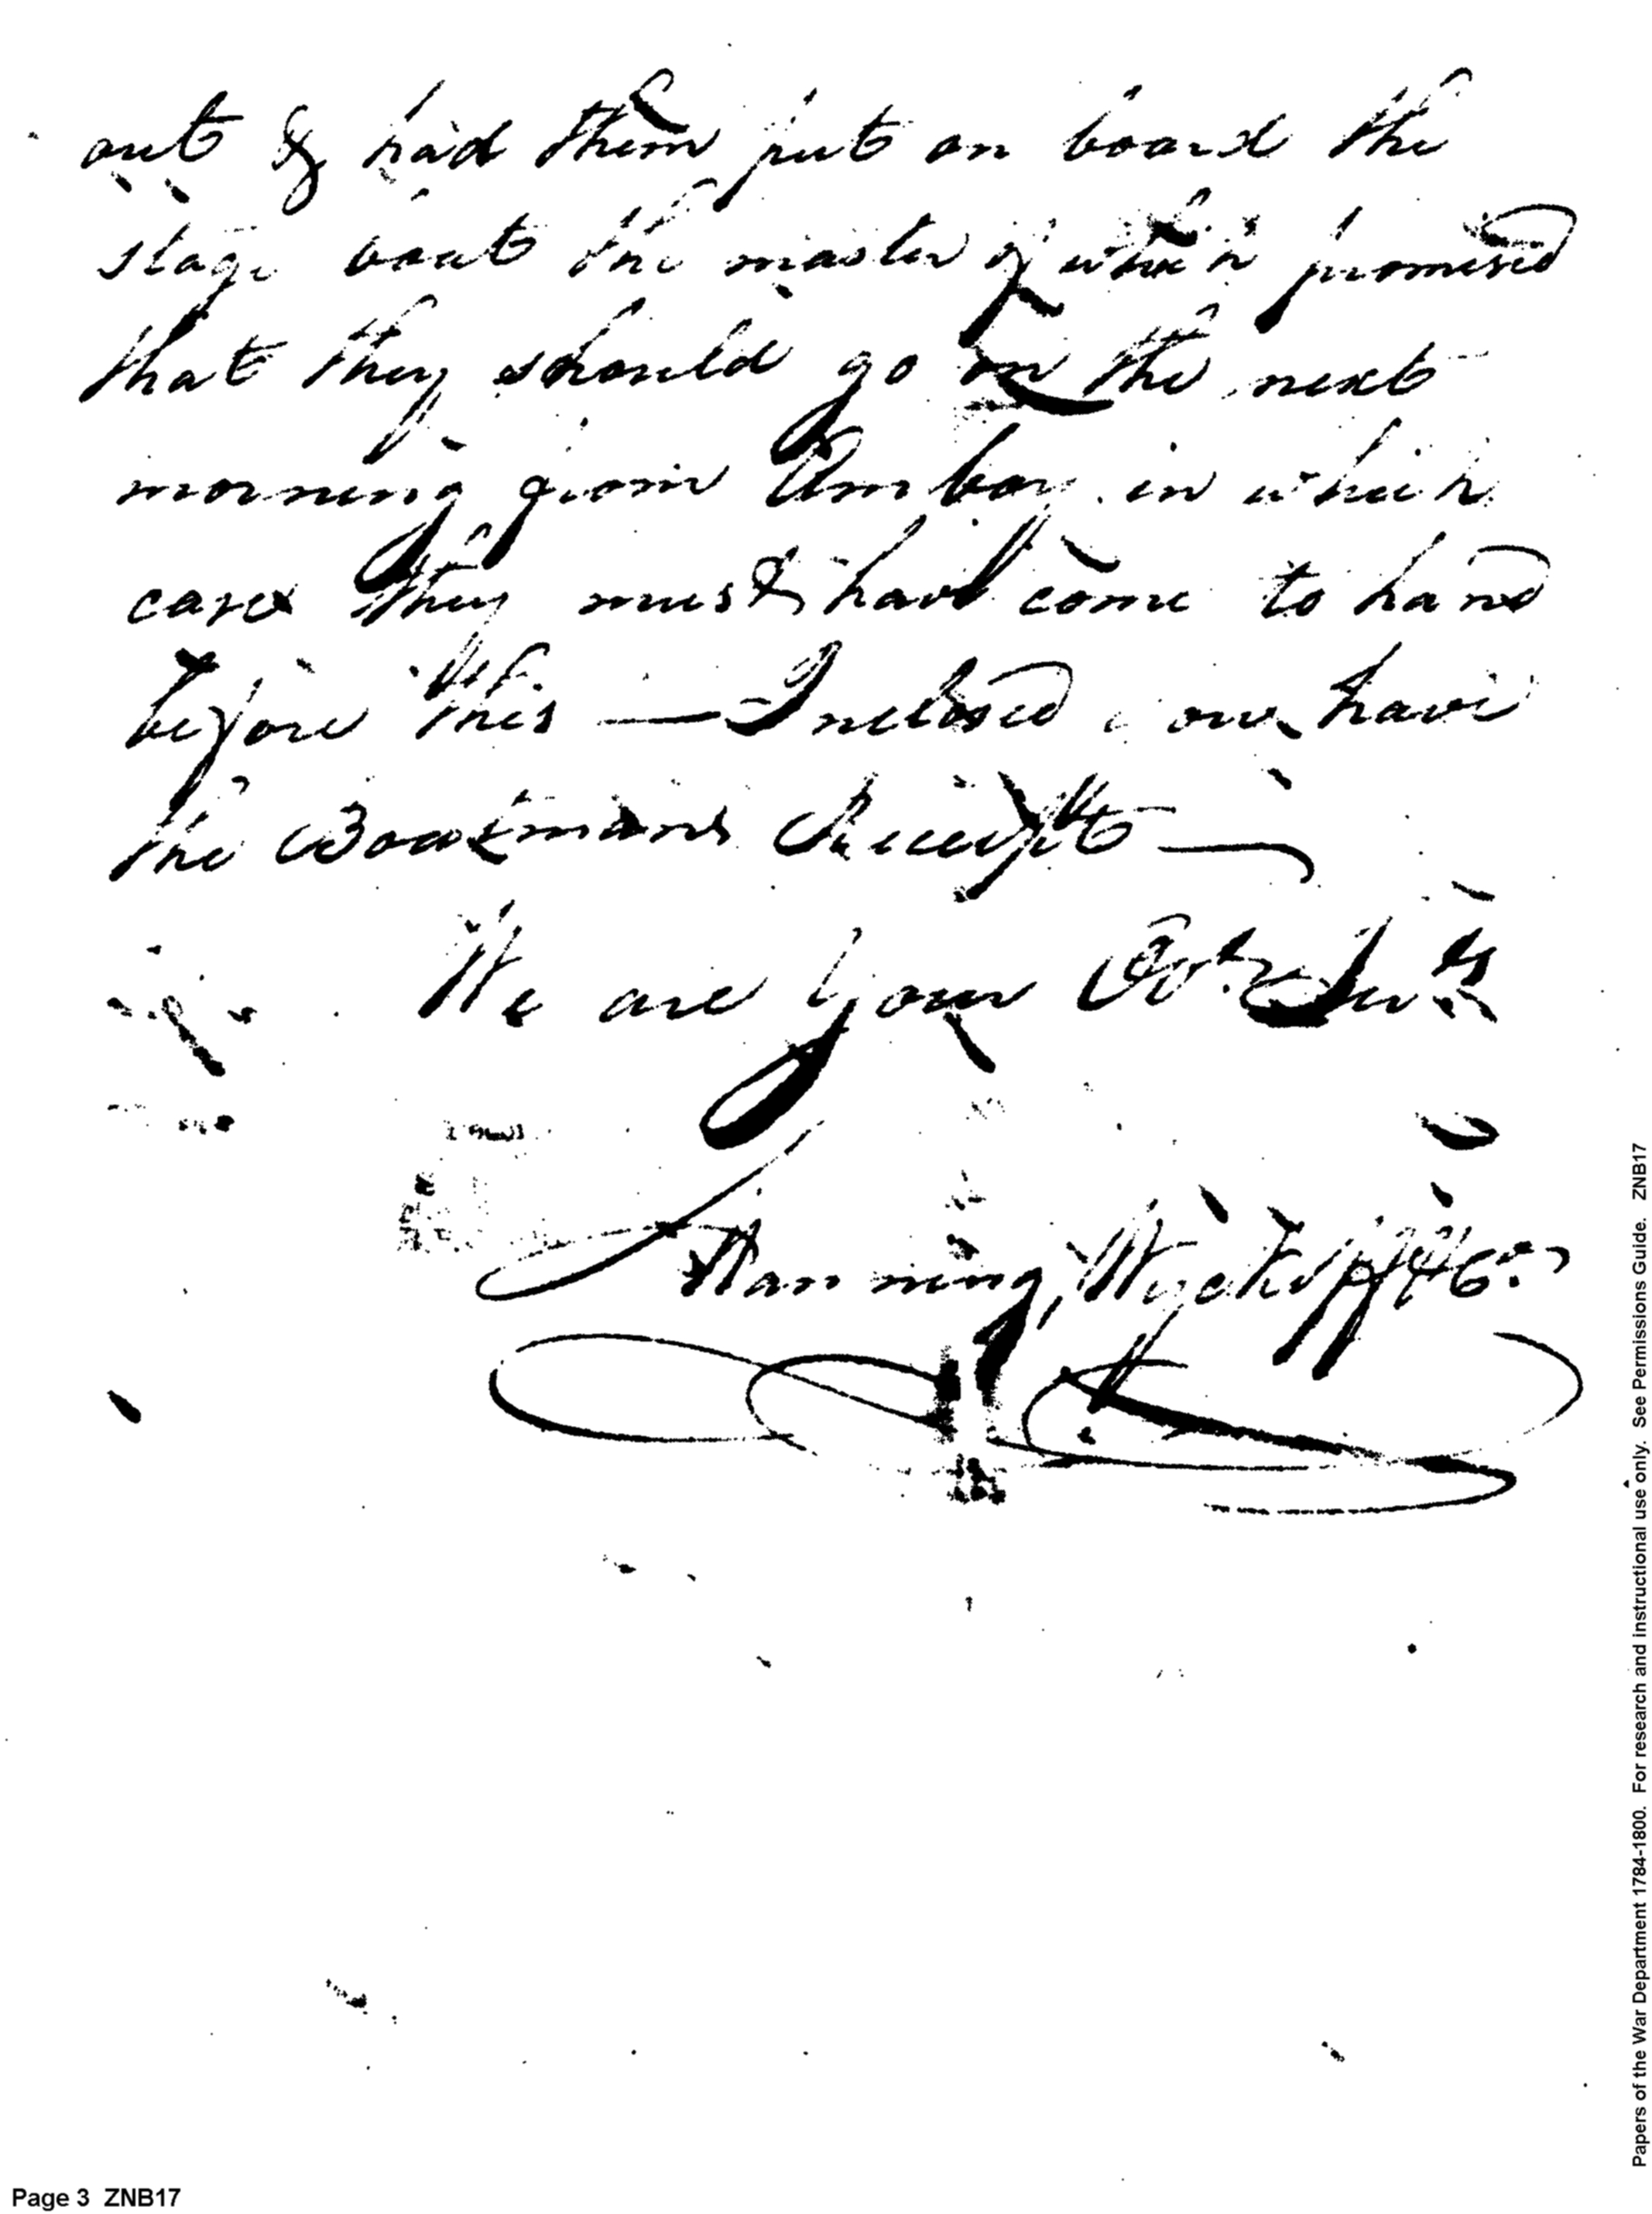 out & had them put on board the
stage boat the master of which promised
that they should go on the next
morning from Amboy in which
case they must have come to hand
before this — Inclosed you have
the Boatmans Receipt —
We are your Obt. Servts
Manning, Wyckoff & Co.
Papers of the War Department 1784-1800. For research and instructional use only. See Permissions Guide. ZNB17
Page 3 ZNB17